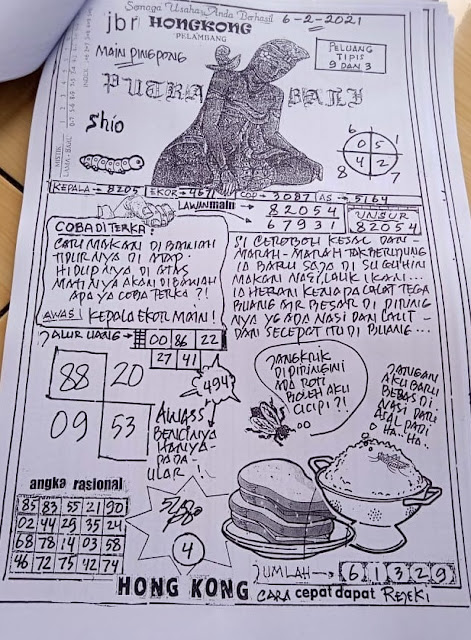 Semoga Usaha Anda Berhasil
jbr HONGKONG
PELAMBANG
6-2-2021
MAIN PINGPONG
PELUANG
TIPIS
9 DAN 3
PUTRA BALI
Shio
6 1
0 5
4 2
8 7
KEPALA → 8205 EKOR → 4671 COP → 3087 AS → 5164
LAWAN main
82054
67931
UNSUR
82054
COBA DI TERKA:
CARI MAKAN DI BAWAH
TIDURNYA DI ATAP
HIDUPNYA DI ATAS
MATINYA AKAN DI BAWAH
ADA YA COBA TERKA ?!
AWAS KEPALA EKOR MAIN!
SI CEROBOH KESAL DAN -
MARAH - MARAH TAK BERUJUNG
IA BARU SAJA DI SUGUHIN
MAKAN NASI, LAUK IKAN...
IA HERAN KENAPA LALAT TEGA
BUANG AIR BESAR DI PIRING
NYA YG ADA NASI DAN LAUT -
DAN SECEPAT ITU DI BUANG...
JALUR UANG → 00 86 22
27 41
88 20
09 53
494
AWASS
BENCINYA
HANYA
PADA -
ULAR
JANGKRIK
DI PIRING INI
ADA ROTI
BOLEH AKU
CICIPI ?!
JANGAN
AKU BARU
BEBAS DI
NASI DARI
ASAL PADI
HA.. HA..
angka rasional
85 83 55 21 90
02 44 29 35 24
68 78 14 03 58
46 72 75 42 74
4
JUMLAH → 6 1 3 2 9
HONG KONG CARA cepat dapat REJEKI